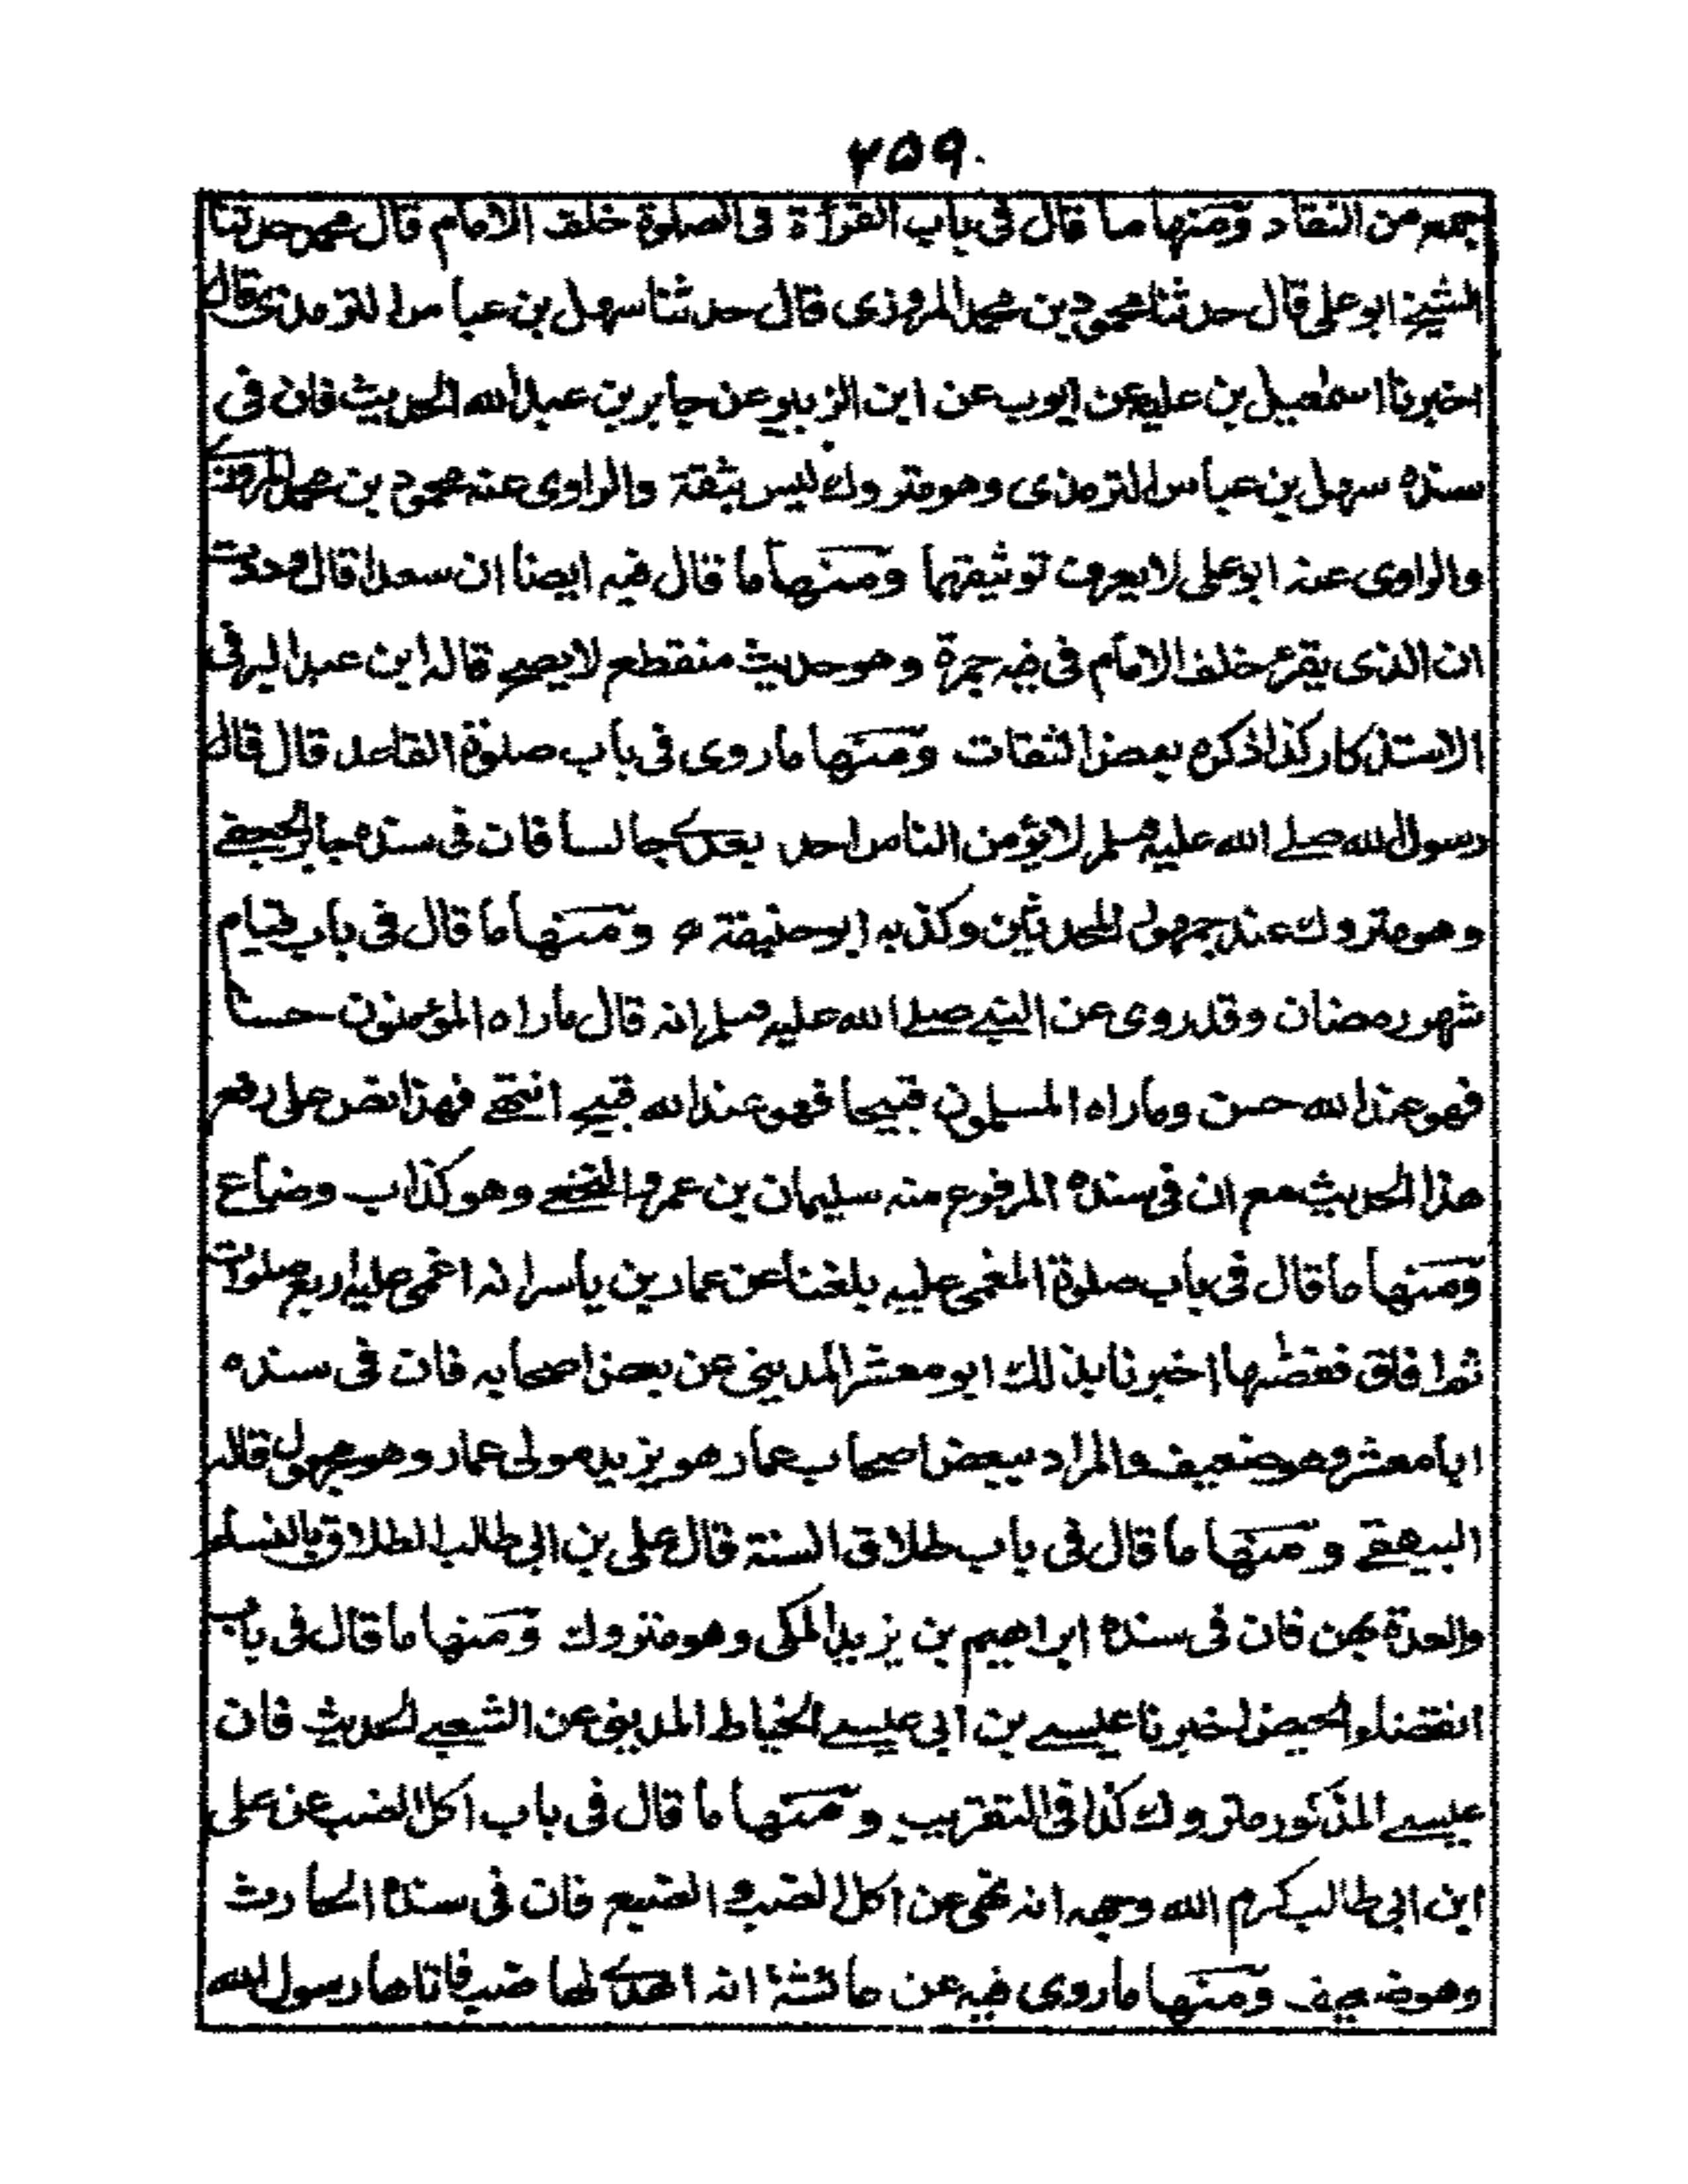 ۲۵۹
جمع من النقاد ومنها ما قال فى باب القرأة فى الصلوة خلف الامام قال محمد حدثنا
الشيخ ابو على قال حدثنا محمود بن محمد المروزى قال حدثنا سهل بن عباس الترمذى قال
اخبرنا اسمعيل بن علية عن ايوب عن ابن الزبير عن جابر بن عبد الله الحديث فان فى
سنده سهل بن عباس الترمذى وهو متروك ليس بثقة والراوى عنه محمود بن محمد المروزى
والراوى عنه ابو على لا يعرف توثيقهما ومنها ما قال فيه ايضا ان سعدا قال وددت
ان الذى يقرء خلف الامام فى فيه جمرة وهو حديث منقطع لا يصح قاله ابن عبد البر فى
الاستذكار كذا ذكره بعض الثقات ومنها ما روى فى باب صلوة القاعد قال قال
رسول الله صلے الله عليه وسلم لا يؤمن الناس احد بعدى جالسا فان فى سنده جابر الجعفے
وهو متروك عند جمهور المحدثين وكذبه ابو حنيفة رح ومنها ما قال فى باب قيام
شهر رمضان وقد روى عن النبے صلے الله عليه وسلم انه قال ماراه المؤمنون حسنا
فهو عند الله حسن وماراه المسلمون قبيحا فهو عند الله قبيح انتهے فهذا نص على رفع
هذا الحديث مع ان فى سنده المرفوع منه سليمان بن عمرو النخعے وهو كذاب وضاع
ومنها ما قال فى باب صلوة المغمى عليه بلغنا عن عمار بن ياسر انه اغمى عليه اربع صلوات
ثم افاق فقضٰها اخبرنا بذلك ابو معشر المدينى عن بعض اصحابه فان فى سنده
ابا معشر وهو ضعيف والمراد ببعض اصحاب عمار هو يزيد مولى عمار وهو مجهول قاله
البيهقے ومنها ما قال فى باب طلاق السنة قال على بن ابى طالب الطلاق بالنساء
والعدة بهن فان فى سنده ابراهيم بن يزيد المكى وهو متروك ومنها ما قال فى باب
انقضاء الحيض اخبرنا عيسے بن ابى عيسے الخياط المدينى عن الشعبے الحديث فان
عيسے المذكور متروك كذا فى التقريب ومنها ما قال فى باب اكل الضب عن على
ابن ابى طالب كرم الله وجهه انه نهى عن اكل الضب والضبع فان فى سنده الحارث
وهو ضعيف ومنها ما روى فيه عن عائشة انه اهدى لها ضب فاتاها رسول الله